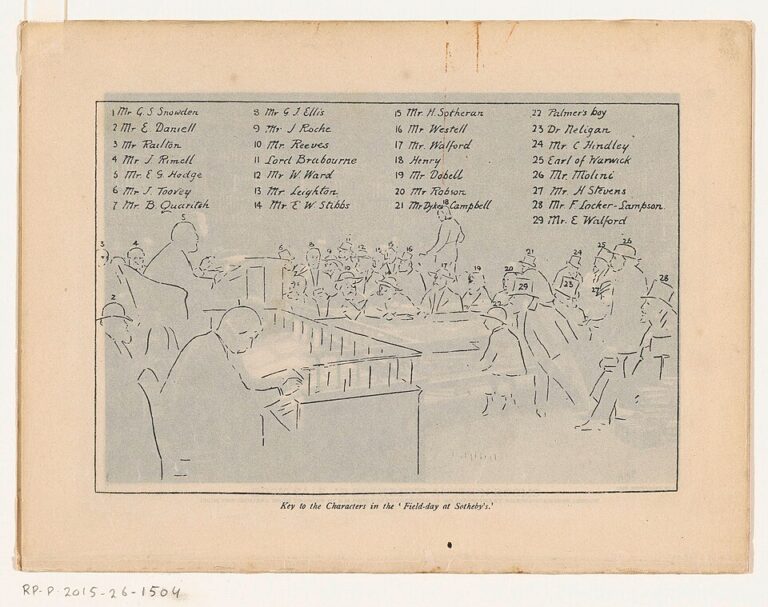 1 Mr G. S Snowden
2 Mr E. Daniell
3 Mr Railton
4 Mr J. Rimell
5 Mr. E G. Hodge
6 Mr. J. Toovey
7 Mr. B. Quaritch
8 Mr G J. Ellis
9 Mr. J Roche
10 Mr. Reeves
11 Lord Brabourne
12 Mr W. Ward
13 Mr. Leighton
14 Mr. E W. Stibbs
15 Mr H. Sotheran
16 Mr Westell
17 Mr. Walford
18 Henry
19 Mr Dobell
20 Mr Robson
21 Mr Dykes Campbell
22 Palmer's boy
23 Dr Neligan
24 Mr C Hindley
25 Earl of Warwick
26 Mr. Molini
27 Mr. H Stevens
28 Mr F Locker-Lampson
29 Mr. E Walford
Key to the Characters in the ' Field-day at Sotheby's.'
RP-P-2015-26-1504